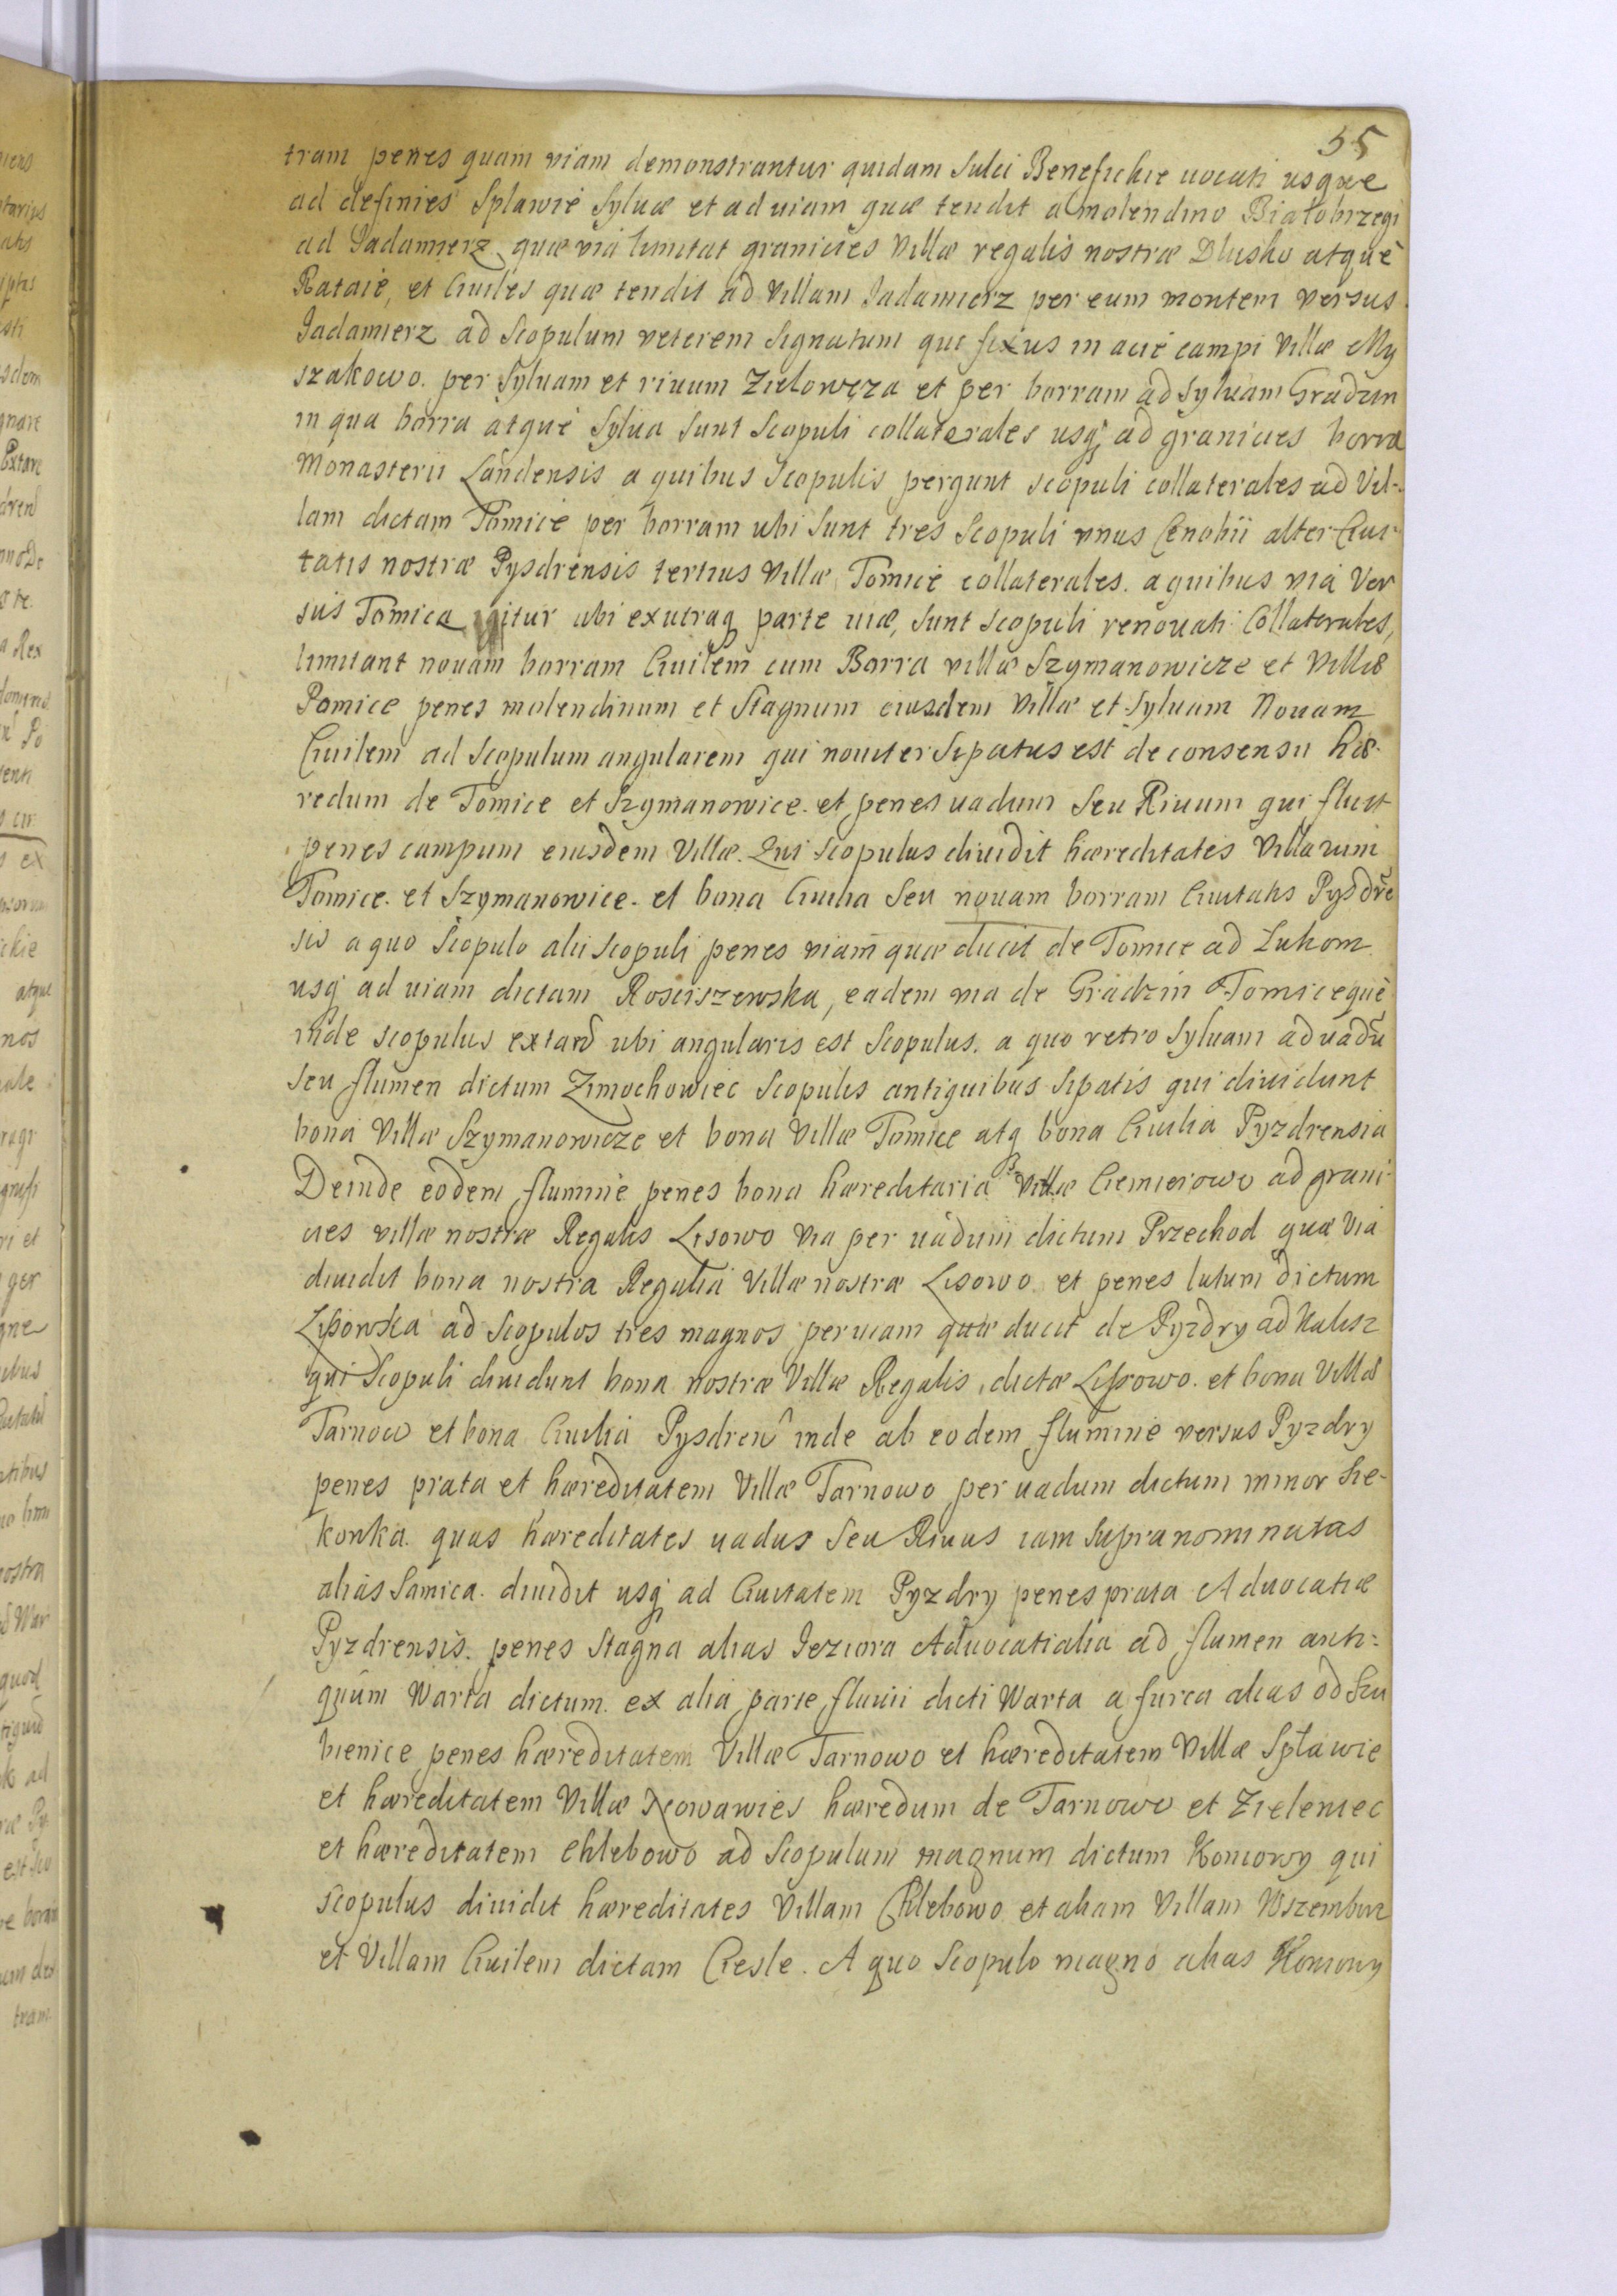 55
tram penes quam viam demonstrantur quidam Sulci Benefickie uocati usque
ad definies Splawie Syluæ et ad uiam quæ tendit a molendino Białobrzegi
ad Jadamierz quæ via limitat granicies Villæ regalis nostræ Dlusko atquè
Rataie, et Ciuiles quæ tendit ad Villam Jadamierz per eum montem versus
Jadamierz ad Scopulum veterem Signatum qui fixus in acie campi Villæ My
szakowo. per Syluam et riuum Zielowęza et per borram ad Syluam Gradzin
in qua borra atque Sylua Sunt Scopuli collaterales usq; ad granicies borra
Monasterii Landensis a quibus Scopulis pergunt scopuli collaterales ad Vil-
lam dictam Tomice per borram ubi Sunt tres Scopuli vnus Cenobii alter Ciui-
tatis nostræ Pysdrensis tertius Villæ Tomice collaterales. a quibus via Ver
sus Tomica igitur ubi ex utraq parte uiæ, Sunt Scopuli renouati Collaterales,
limitant nouam borram Ciuilem cum Borra villæ Szymanowicze et Villæ
Pomice penes molendinum et Stagnum eiusdem Villæ et Syluam Nouam
Ciuilem ad Scopulum angularem qui nouiter Sipatus est de consensu hæ-
redum de Tomice et Szymanowice. et penes uadum Seu Riuum qui fluit
penes campum eiusdem Villæ. Qui Scopulus diuidit hæreditates Villarum
Tomice. et Szymanowice. et bona Ciuilia Seu nouam borram Ciuitatis Pysdrē
sis a quo Scopulo alii scopuli penes viam quæ ducit de Tomice ad Lukom
usq; ad uiam dictam Rosciszewska, eadem via de Gradzin Tomiceque
inde scopulus extand ubi angularis est Scopulus. a quo retro Syluam ad uadū
seu flumen dictum Zimochowiec Scopulis antiquibus Sipatis qui diuidunt
bona Villæ Szymanowicze et bona Villæ Tomice atq bona Ciuilia Pyzdrensia
Deinde eodem flumine penes bona hæreditaria Villæ Ciemierowo ad grani-
cies villæ nostræ Regalis Lisowo via per uadum dictum Przechod quæ via
diuidit bona nostra Regalia Villæ nostræ Lisowo et penes lutum dictum
Lissowska ad Scopulos tres magnos per uiam quæ ducit de Pyzdry ad Kalisz
qui Scopuli diuidunt bona nostræ Villæ Regalis dictæ Lissowo. et bona Villæ
Tarnow et bona Ciuilia Pysdren̂ inde ab eodem flumine versus Pyzdry
penes prata et hæreditatem Villæ Tarnowo per uadum dictum minor Sie-
konka. quas hæreditates uadus Seu Riuus iam Supranominatas
alias Samica. diuidit usq; ad Ciuitatem Pyzdry penes prata Aduocatiæ
Pyzdrensis. penes Stagna alias Jeziora Aduocatialia ad flumen anti-
quûm Warta dictum. ex alia parte fluuii dicti Warta a furca alias od Szu
bienice penes hæreditatem Villæ Tarnowo et hæreditatem Villæ Spławie
et hæreditatem Villæ Nowawies hæredum de Tarnowo et Zieleniec
et hæreditatem Chlebowo ad Scopulum magnum dictum Koncowy qui
scopulus diuidit hæreditates Villam Chlebowo et aliam Villam Wszembur
et Villam Ciuilem dictam Ciesle. A quo Scopulo magno alias Koncowy